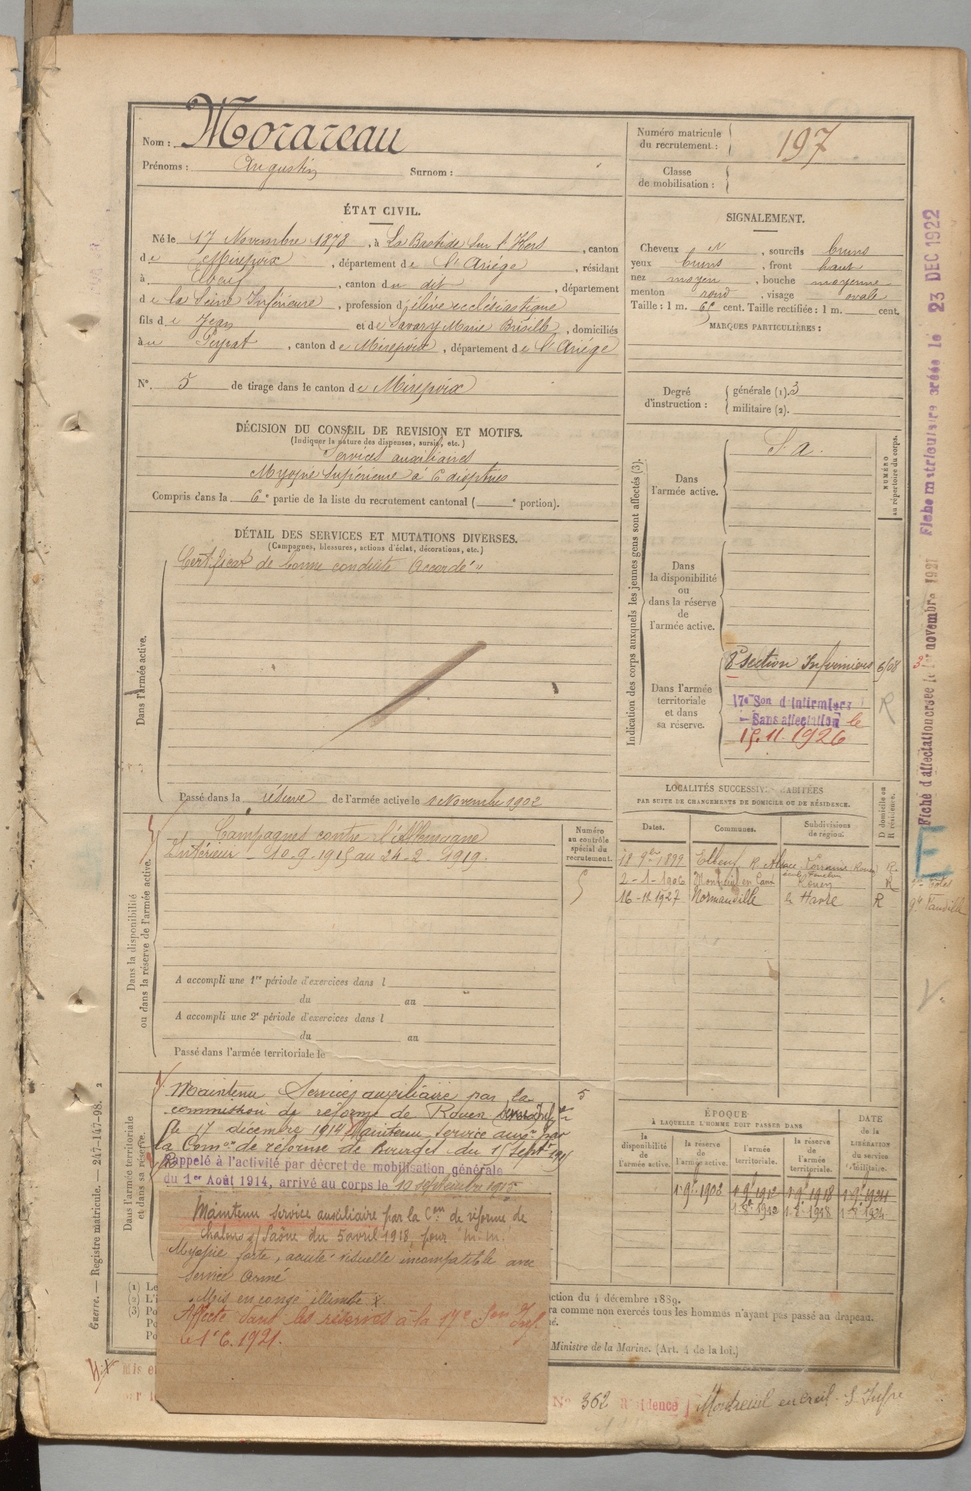 Nom : Morareau
Prénoms : Augustin Surnom :
Numéro matricule du recrutement : 197
Classe de mobilisation :
ÉTAT CIVIL.
Né le 17 Novembre 1878, à La Bastide sur l'Hers, canton
de Mirepoix, département de l'Ariége, résidant
à Elbeuf, canton du dit, département
de la Seine Inférieure, profession d'élève ecclésiastique
fils de Jean et de Savary Marie, domiciliés
à u Peyrat, canton de Mirepoix, département de l'Ariége
N° 5 de tirage dans le canton de Mirepoix
SIGNALEMENT.
Cheveux , sourcils bruns
yeux bruns, front haut
nez moyen, bouche moyenne
menton rond, visage ovale
Taille : 1 m. cent. Taille rectifiée : 1 m. cent.
MARQUES PARTICULIÈRES :
Degré d'instruction : générale (1). 3
militaire (2).
DÉCISION DU CONSEIL DE REVISION ET MOTIFS.
(Indiquer la nature des dispenses, sursis, etc.)
Services auxiliaires
Myopie supérieure à 6 dioptries
Compris dans la 6e partie de la liste du recrutement cantonal ( e portion).
DÉTAIL DES SERVICES ET MUTATIONS DIVERSES.
(Campagnes, blessures, actions d'éclat, décorations, etc.)
Dans l'armée active.
Certificat de bonne conduite Accordé
Passé dans la réserve de l'armée active le 1 Novembre 1902
Indication des corps auxquels les jeunes gens sont affectés (3).
NUMÉRO au répertoire du corps.
Dans l'armée active.
S. a.
Dans la disponibilité ou dans la réserve de l'armée active.
Dans l'armée territoriale et dans sa réserve.
8e section Infirmiers 6/08
17e Son d'Infirmiers
Sans affectation le
15.11.1926
R
Fiche matriculaire créée le 23 DEC 1922
Fiche d'affectation créée le 1er novembre 1921
Dans la disponibilité ou dans la réserve de l'armée active.
Campagnes contre l'Allemagne
Intérieur - 10.9.1915 au 24.2.1919.
Numéro au contrôle spécial du recrutement.
5
A accompli une 1re période d'exercices dans l
du au
A accompli une 2e période d'exercices dans l
du au
Passé dans l'armée territoriale le
LOCALITÉS SUCCESSIVES HABITÉES
PAR SUITE DE CHANGEMENTS DE DOMICILE OU DE RÉSIDENCE.
D domicile ou R résidence.
Dates. Communes. Subdivisions de région.
18 9bre 1899 Elbeuf R. Alsace Lorraine Rouen R
2-1-1906 Montreuil en Caux Rouen R
16-11 1927 Normanville Le Havre R
E
Dans l'armée territoriale et dans sa réserve.
Maintenu Services auxiliaire par la 5
commission de réforme de Rouen
le 17 décembre 1914 Maintenu service auxre par
la Comon de réforme de Bourges du 15 Septre 1915
Rappelé à l'activité par décret de mobilisation générale
du 1er Août 1914, arrivé au corps le 10 septembre 1915
Maintenu service auxiliaire par la Con de réforme de
Chalons s/Saône du 5 avril 1918 pour "m.m."
Myopie forte, acuité visuelle incompatible avec
service armé
Mis en congé illimité
Affecté dans les réserves à la 17e Son Inf.
le 1.6.1921.
ÉPOQUE
À LAQUELLE L'HOMME DOIT PASSER DANS
DATE de la LIBÉRATION du service militaire.
la disponibilité de l'armée active. la réserve de l'armée active. l'armée territoriale. la réserve de l'armée territoriale.
1.9e 1902 1.9e 1912 1.9e 1918 1.9e 1924
1.8e 1912 1.8e 1918 1.8e 1924
Guerre. — Registre matricule. — 247-147-98. 2
(1) Le
(2) L'i
(3) Po
Po
Po
ction du 4 décembre 1889.
ra comme non exercés tous les hommes n'ayant pas passé au drapeau.
né.
Ministre de la Marine. (Art. 4 de la loi.)
N° 362 Résidence Montreuil en Caux S. Infre